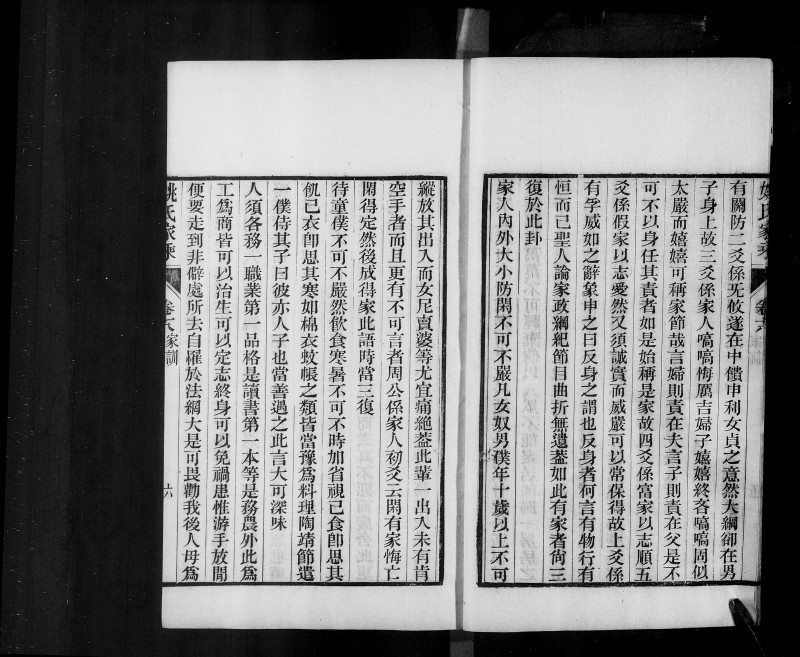 姚氏家乘 卷六 家訓
有關防二爻係旡攸遂在中饋申利女貞之意然大綱卻在男
子身上故三爻係家人嗃嗃悔厲吉婦子嘻嘻終吝嗃嗃固似
太嚴而嬉嬉可稱家節哉言婦則責在夫言子則責在父是不
可不以身任其責者如是始稱是家故四爻係當家以志順五
爻係假家以志愛然又須誠實而威嚴可以常保得故上爻係
有孚威如之辭象申之曰反身之謂也反身者何言有物行有
恒而已聖人論家政綱紀節目曲折無遺葢如此有家者尙三
復於此卦
家人內外大小防閑不可不嚴凡女奴男僕年十歲以上不可
縱放其出入而女尼賣婆等尤宜痛絶葢此輩一出入未有肯
空手者而且更有不可言者周公係家人初爻云閑有家悔亡
閑得定然後成得家此語時當三復
待童僕不可不嚴然飲食寒暑不可不時加省視己食卽思其
飢己衣卽思其寒如棉衣蚊帳之類皆當豫爲料理陶靖節遣
一僕侍其子曰彼亦人子也當善遇之此言大可深味
人須各務一職業第一品格是讀書第一本等是務農外此爲
工爲商皆可以治生可以定志終身可以免禍患惟游手放閒
便要走到非僻處所去自罹於法綱大是可畏勸我後人毋爲
姚氏家乘 卷六 家訓 六